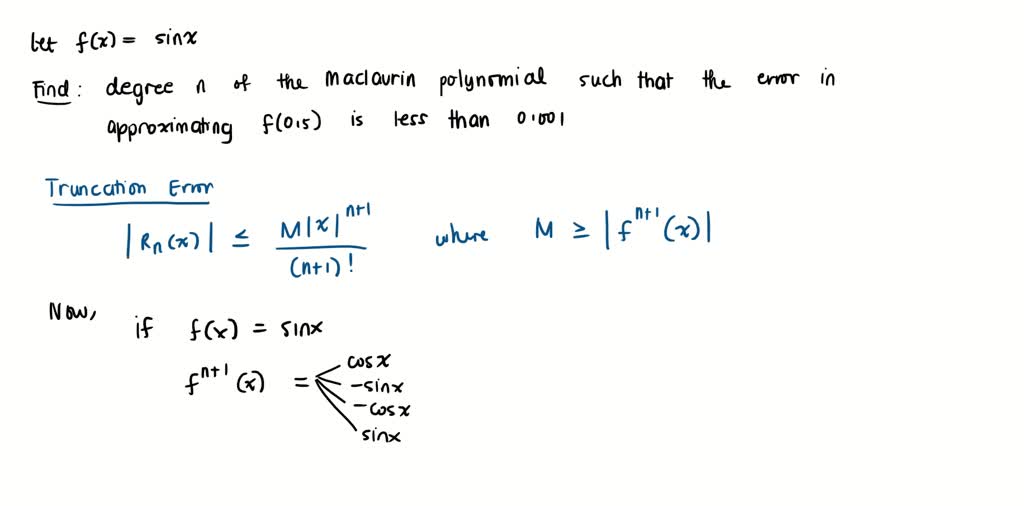 let f(x) = sinx
Find: degree n of the Maclaurin polynomial such that the error in
approximating f(0.5) is less than 0.001
Truncation Error
|Rn(x)| ≤ M|x|^(n+1) / (n+1)! where M ≥ |f^(n+1)(x)|
Now,
if f(x) = sinx
f^(n+1)(x) = cosx
-sinx
-cosx
sinx